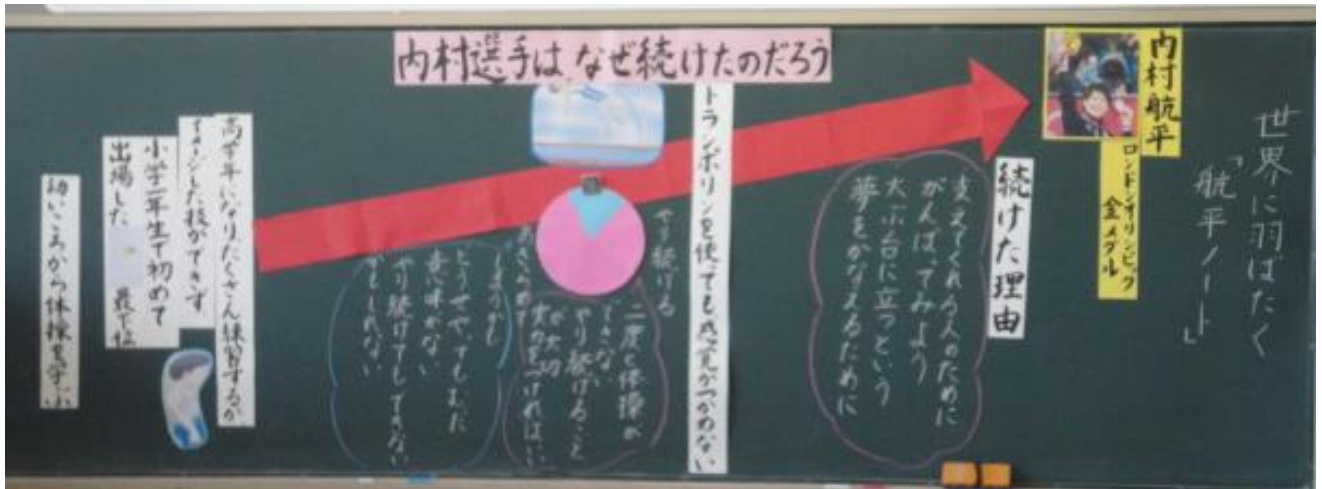 世界に羽ばたく
「航平ノート」
内村航平
ロンドンオリンピック
金メダル
内村選手は、なぜ続けたのだろう
続けた理由
支えてくれる人のために
がんばってみよう
大ぶ台に立つという
夢をかなえるために
トランポリンを使っても感覚がつかめない
やり続ける
二度と体操が
できない
やり続けること
が大切
あきらめて
しまうかも
どうせやってもむだ
意味がない
やり続けてもできない
かもしれない
高学年になりたくさん練習するが
イメージした技ができず
小学一年生で初めて
出場した
最下位
幼いころから体操を学ぶ